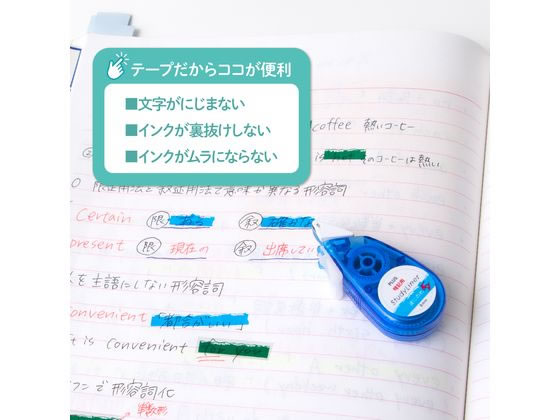 テープだからココが便利
■文字がにじまない
■インクが裏抜けしない
■インクがムラにならない
coffee 熱いコーヒー
のコーヒーは熱い
限定用法と叙述用法で意味が異なる形容詞
Certain 限 叙 確かな
present 限 現在の 叙 出席してい
を主語にしない形容詞
convenient 「都合がいい」
is convenient for you
で形容詞化
PLUS
暗記用
StudyLiner